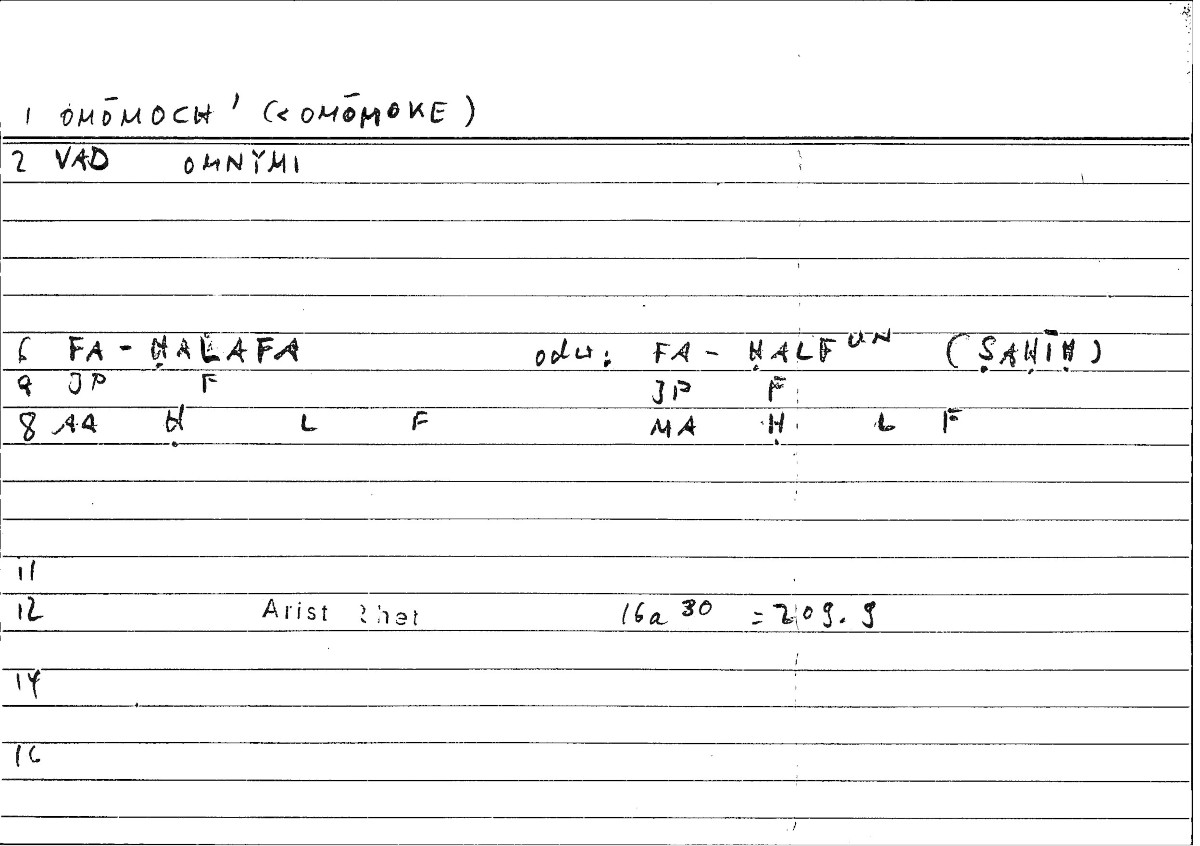 1 OMŌMOCH' (< OMŌMOKE)
2 VAD OMNỸMI
6 FA-ḤALAFA oder: FA-ḤALFUN (ṢAḤĪḤ)
9 JP F JP F
8 AA Ḥ L F MA Ḥ L F
11
12 Arist Rhet 16a 30 = 209.9
14
16